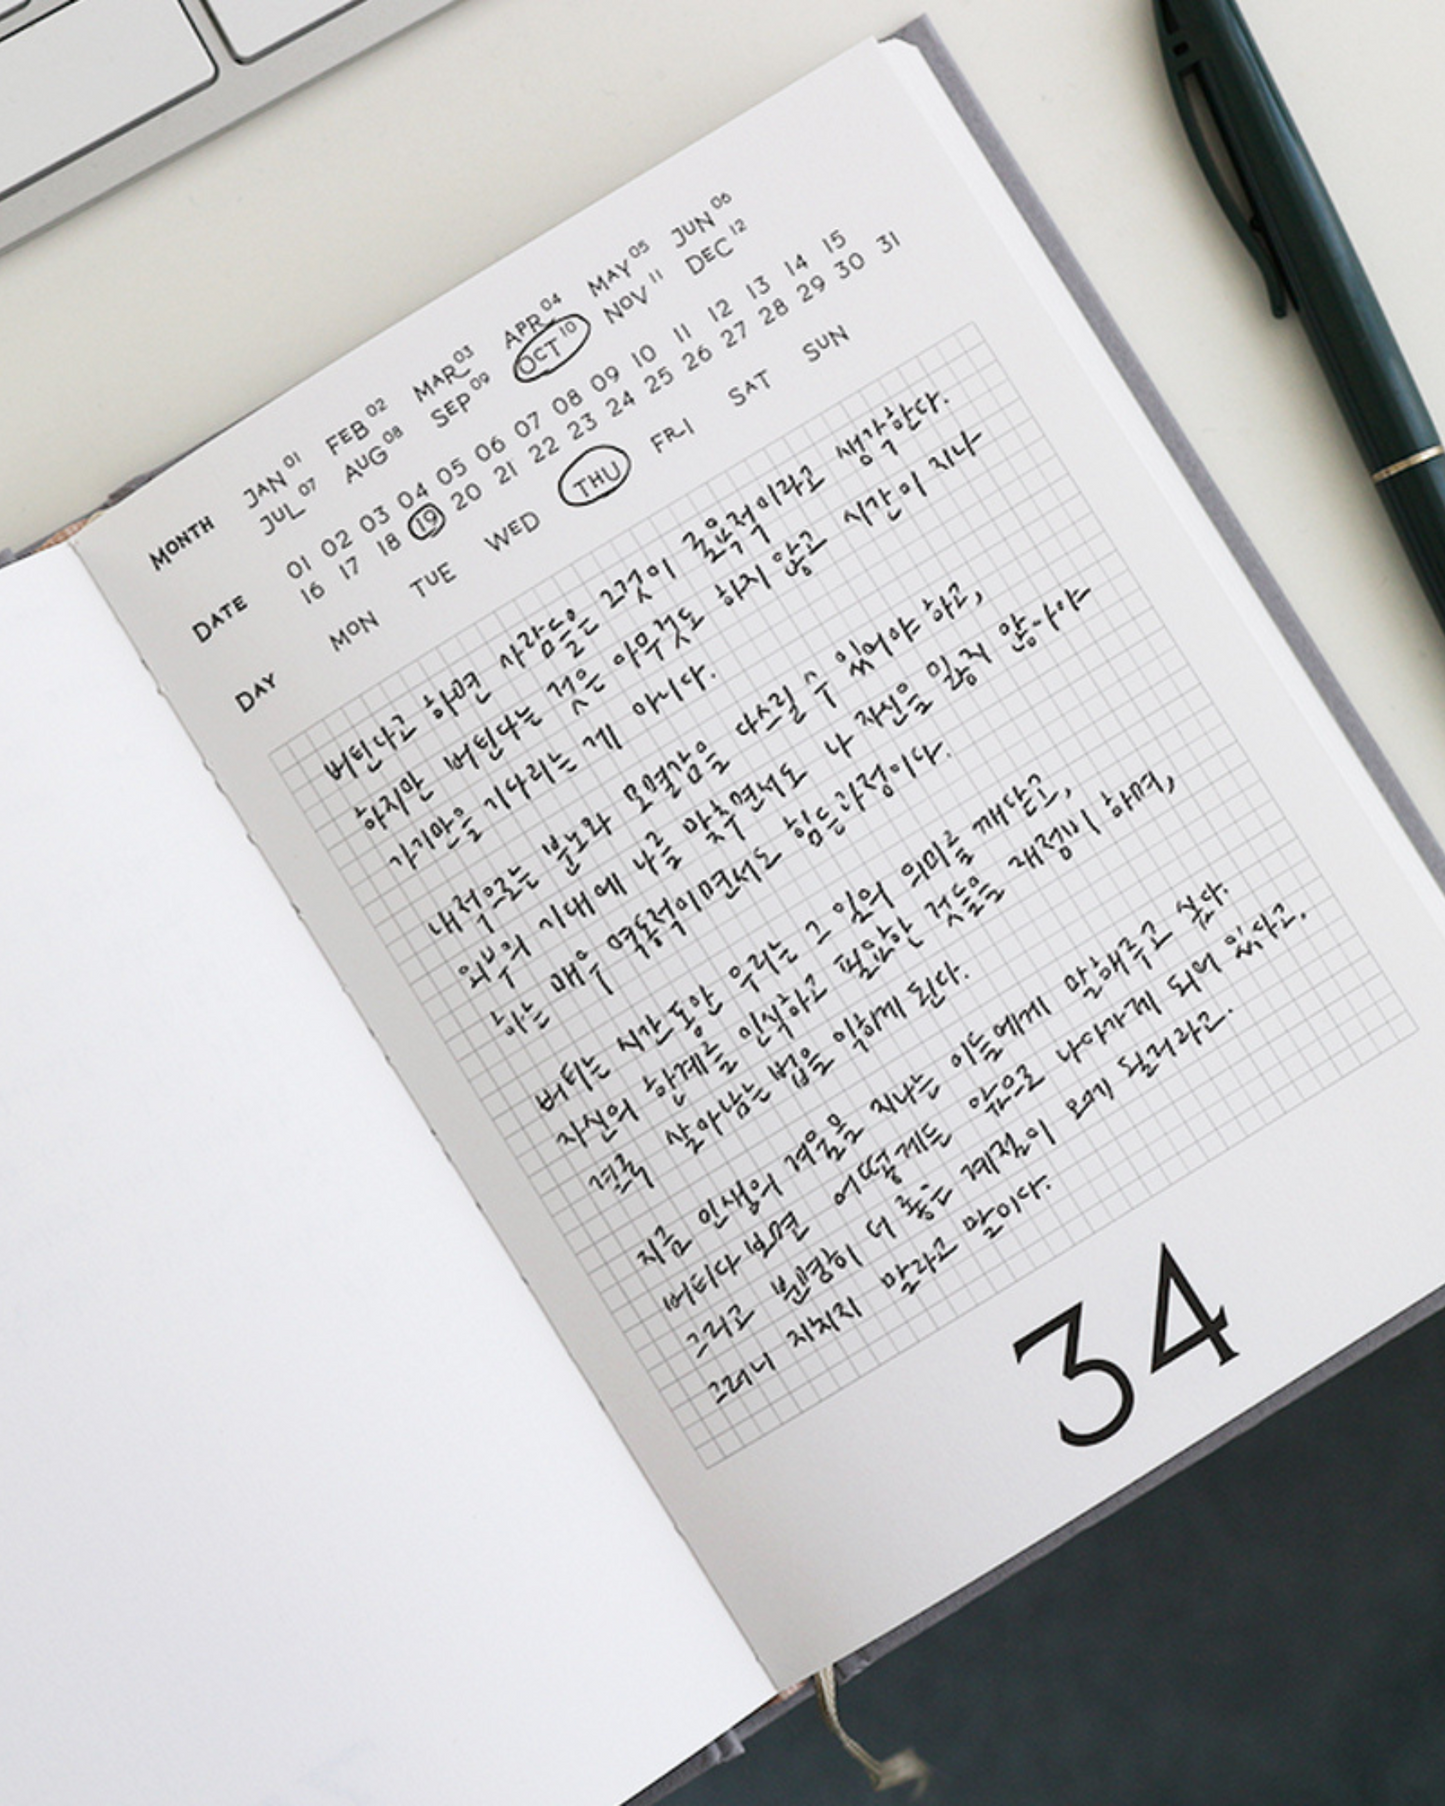 MONTH JAN 01 FEB 02 MAR 03 APR 04 MAY 05 JUN 06
JUL 07 AUG 08 SEP 09 OCT 10 NOV 11 DEC 12
DATE 01 02 03 04 05 06 07 08 09 10 11 12 13 14 15
16 17 18 19 20 21 22 23 24 25 26 27 28 29 30 31
DAY MON TUE WED THU FRI SAT SUN
버틴다고 하면 사람들은 그것이 굴욕적이라고 생각한다.
하지만 버틴다는 것은 아무것도 하지 않고 시간이 지나
가기만을 기다리는 게 아니다.
내적으로는 분노와 모멸감을 다스릴 수 있어야 하고,
외부의 기대에 나를 맞추면서도 나 자신을 잃지 않아야
하는 매우 역동적이면서도 힘든 과정이다.
버티는 시간 동안 우리는 그 일의 의미를 깨닫고,
자신의 한계를 인식하고 필요한 것들을 재정비 하며,
결국 살아남는 법을 익히게 된다.
지금 인생의 겨울을 지나는 이들에게 말해주고 싶다.
버티다 보면 어떻게든 앞으로 나아가게 되어 있다고.
그리고 분명히 더 좋은 계절이 오게 될거라고.
그러니 지치지 말라고 말이다.
34